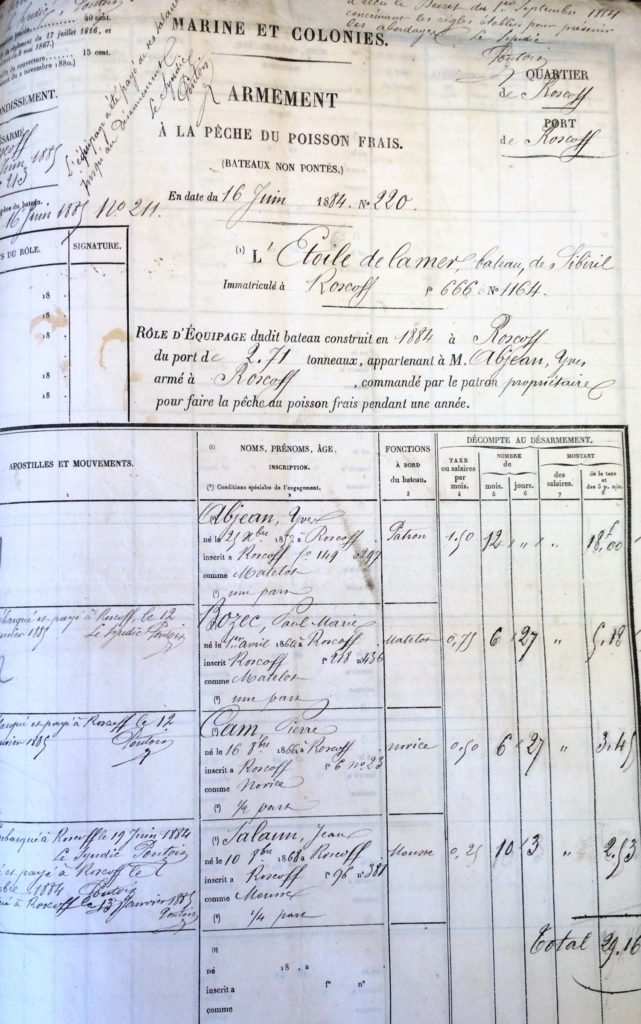 40 cent.
du règlement du 17 juillet 1816, et
mai 1867.)
15 cent.
novembre 1880.)
NDISSEMENT.
DÉSARMÉ
Roscoff
Juin 1885
N° 213
16 Juin 1885 N° 211.
L'équipage a été payé de ses salaires
jusqu'au désarmement
Le Syndic
Pontois
MARINE ET COLONIES.
a reçu le Décret du 1er Septembre 1884
concernant les règles établies pour prévenir
les abordages
Le Syndic
Pontois
ARMEMENT
À LA PÊCHE DU POISSON FRAIS.
(BATEAUX NON PONTÉS.)
QUARTIER
de Roscoff
PORT
de Roscoff
En date du 16 Juin 1884. N° 220.
(1) L'Etoile de la mer, bateau, de Sibiril
Immatriculé à Roscoff f° 666. N° 1164.
DU RÔLE. SIGNATURE.
18 .
18 .
18 .
18 .
RÔLE D'ÉQUIPAGE dudit bateau construit en 1884 à Roscoff
du port de 2.71 tonneaux, appartenant à M. Abjean, Yves
armé à Roscoff , commandé par le patron propriétaire
pour faire la pêche du poisson frais pendant une année.
APOSTILLES ET MOUVEMENTS.
1
NOMS, PRÉNOMS, ÂGE.
INSCRIPTION.
(*) Conditions spéciales de l'engagement.
2
FONCTIONS
À BORD
du bateau.
3
DÉCOMPTE AU DÉSARMEMENT.
TAXE
ou salaires
par
mois.
4
NOMBRE
de
mois. jours.
5 6
MONTANT
des
salaires.
7
de la taxe
et
des 3 p. o/o.
8
Abjean, Yves Patron 1.50 12 " " " 18f00
né le 25 Xbre à Roscoff
inscrit à Roscoff f° 149 n° 297
comme Matelot
(*) une part
débarqué et payé à Roscoff, le 12
janvier 1885 Le Syndic Pontois
Bozec, Paul-Marie Matelot 0,75 6 27 " 5,18
né le 1er avril 1864 à Roscoff
inscrit Roscoff f° 218 n° 436
comme Matelot
(*) une part
débarqué et payé à Roscoff le 12
janvier 1885 Pontois
(*) Cam, Pierre novice 0,50 6 27 " 3.45
né le 16 8bre 1866 à Roscoff
inscrit à Roscoff f° 6 n° 23
comme Novice
(*) 1/4 part
embarqué à Roscoff le 19 Juin 1884
Le Syndic Pontois
et payé à Roscoff le
1884 Pontois
à Roscoff le 13 Janvier 1885
Pontois
(*) Salaun, Jean Mousse 0,25 10 3 " 2.53
né le 10 9bre 1868 à Roscoff
inscrit à Roscoff f° 96 n° 381
comme Mousse
(*) 1/4 part
Total 29.16
(*)
né 18 . à
inscrit à f° n°
comme